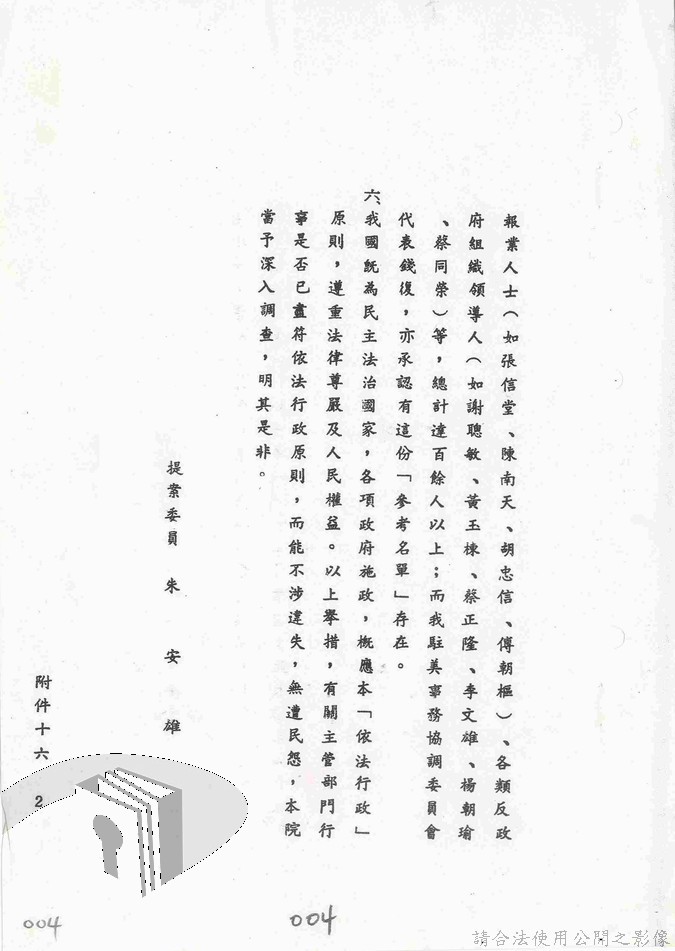 報業人士（如張信堂、陳南天、胡忠信、傅朝樞）、各類反政
府組織領導人（如謝聰敏、黃玉棟、蔡正隆、李文雄、楊朝瑜
、蔡同榮）等，總計達百餘人以上；而我駐美事務協調委員會
代表錢復，亦承認有這份「參考名單」存在。
六、我國既為民主法治國家，各項政府施政，概應本「依法行政」
原則，遵重法律尊嚴及人民權益。以上舉措，有關主管部門行
事是否已盡符依法行政原則，而能不涉違失，無遭民怨，本院
當予深入調查，明其是非。
提案委員 朱 安 雄
附件十六 2
004
004
請合法使用公開之影像